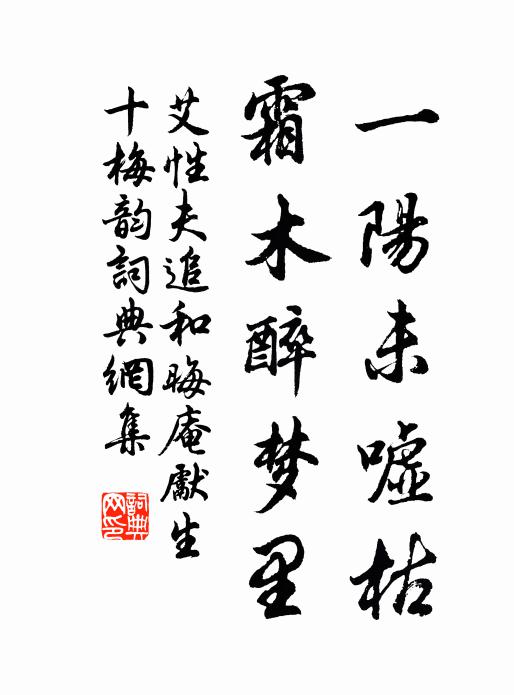 一陽未噓枯
霜木醉梦里
艾性夫追和晦庵獻生
十梅韵詞典網集
詞典網印